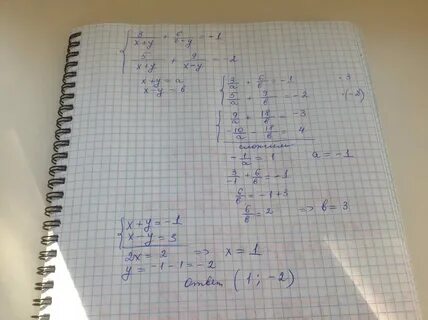 { 3/(x+y) + 6/(x-y) = -1
5/(x+y) + 9/(x-y) = -2
x+y = a
x-y = b
{ 3/a + 6/b = -1 ·3
5/a + 9/b = -2 ·(-2)
{ 9/a + 18/b = -3
-10/a - 18/b = 4
сложим
-1/a = 1 a = -1
3/-1 + 6/b = -1
6/b = -1+3
6/b = 2 => b = 3
{ x+y = -1
x-y = 3
2x = 2 => x = 1
y = -1-1 = -2
Ответ (1; -2)